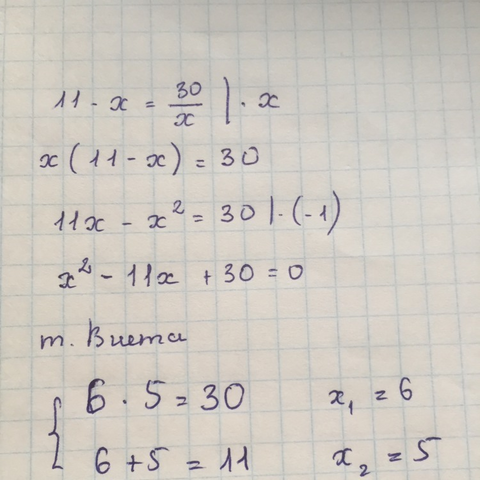 11 - x = 30/x | · x
x(11 - x) = 30
11x - x² = 30 | · (-1)
x² - 11x + 30 = 0
т. Виета
{ 6 · 5 = 30 x₁ = 6
6 + 5 = 11 x₂ = 5